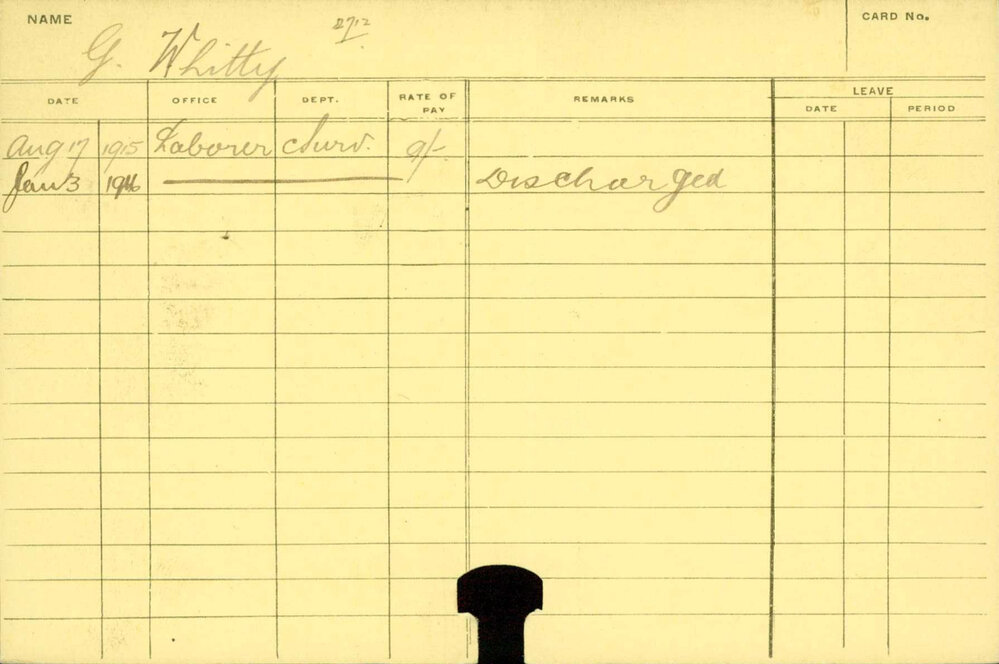 NAME G. Whitty CARD No.
DATE OFFICE DEPT. RATE OF PAY REMARKS LEAVE
DATE PERIOD
Aug 17 1915 Laborer 9/-
Jan 3 1916 Discharged